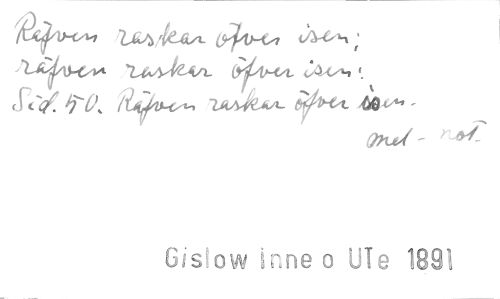 Räfven raskar öfver isen;
räfven raskar öfver isen!
Sid. 50. Räfven raskar öfver isen.
mel - not.
Gislow Inne o UTe 1891